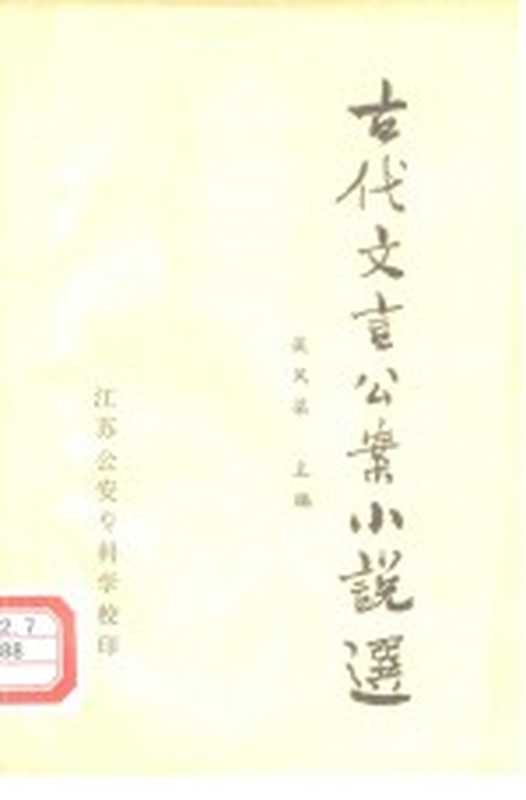 古代文言公案小說選
吴凤 主编
江苏公安专科学校印
2.7
88